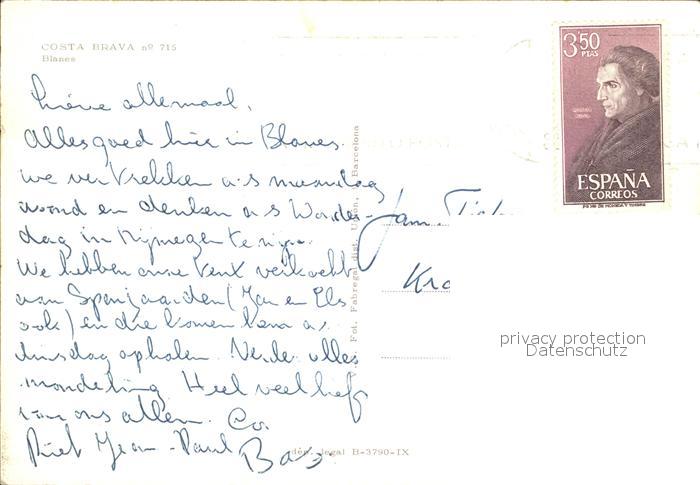 COSTA BRAVA nº 715
Blanes
3,50
PTAS
ESPAÑA
CORREOS
Lieve allemaal,
Alles goed hier in Blanes.
we vertrekken a.s maandag
avond en denken a.s Wonder-
dag in Nijmegen te zijn.
We hebben onze tent verkocht
aan Spanjaarden (Jan en Els
ook) en die komen hem a.s
dinsdag ophalen. Verder alles
mondeling. Heel veel liefs
van ons allen. Co.
Piet Jean-Paul Bas
Fam.
Fot. Fabregal dist. Unión, Barcelona
dep. legal B-3790-IX
privacy protection
Datenschutz